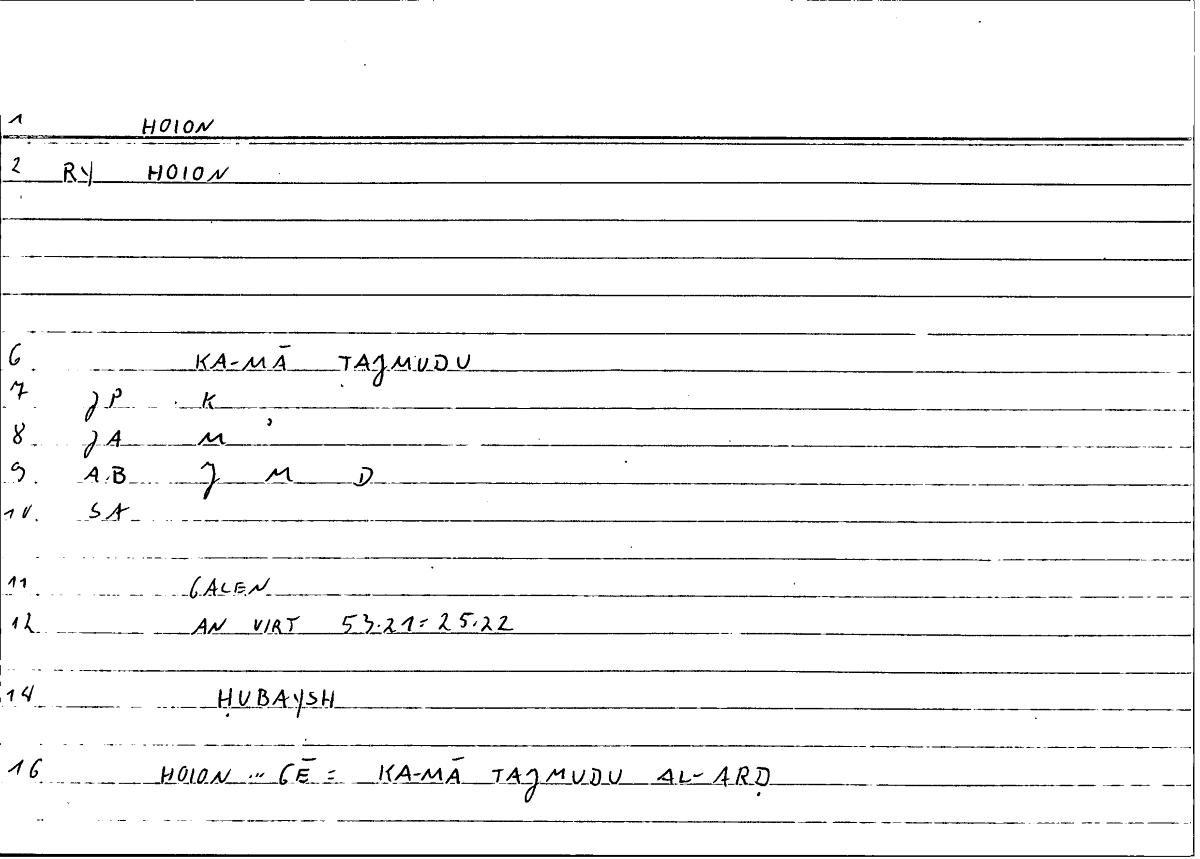 1 HOION
2 RY HOION
6 KA-MĀ TAJMUDU
7 JP K
8 JA M ʾ
9. AB J M D
10. SA
11 GALEN
12 AN VIRT 53.21=25.22
14 ḤUBAYSH
16 HOION ... GĒ = KA-MĀ TAJMUDU AL-ARḌ